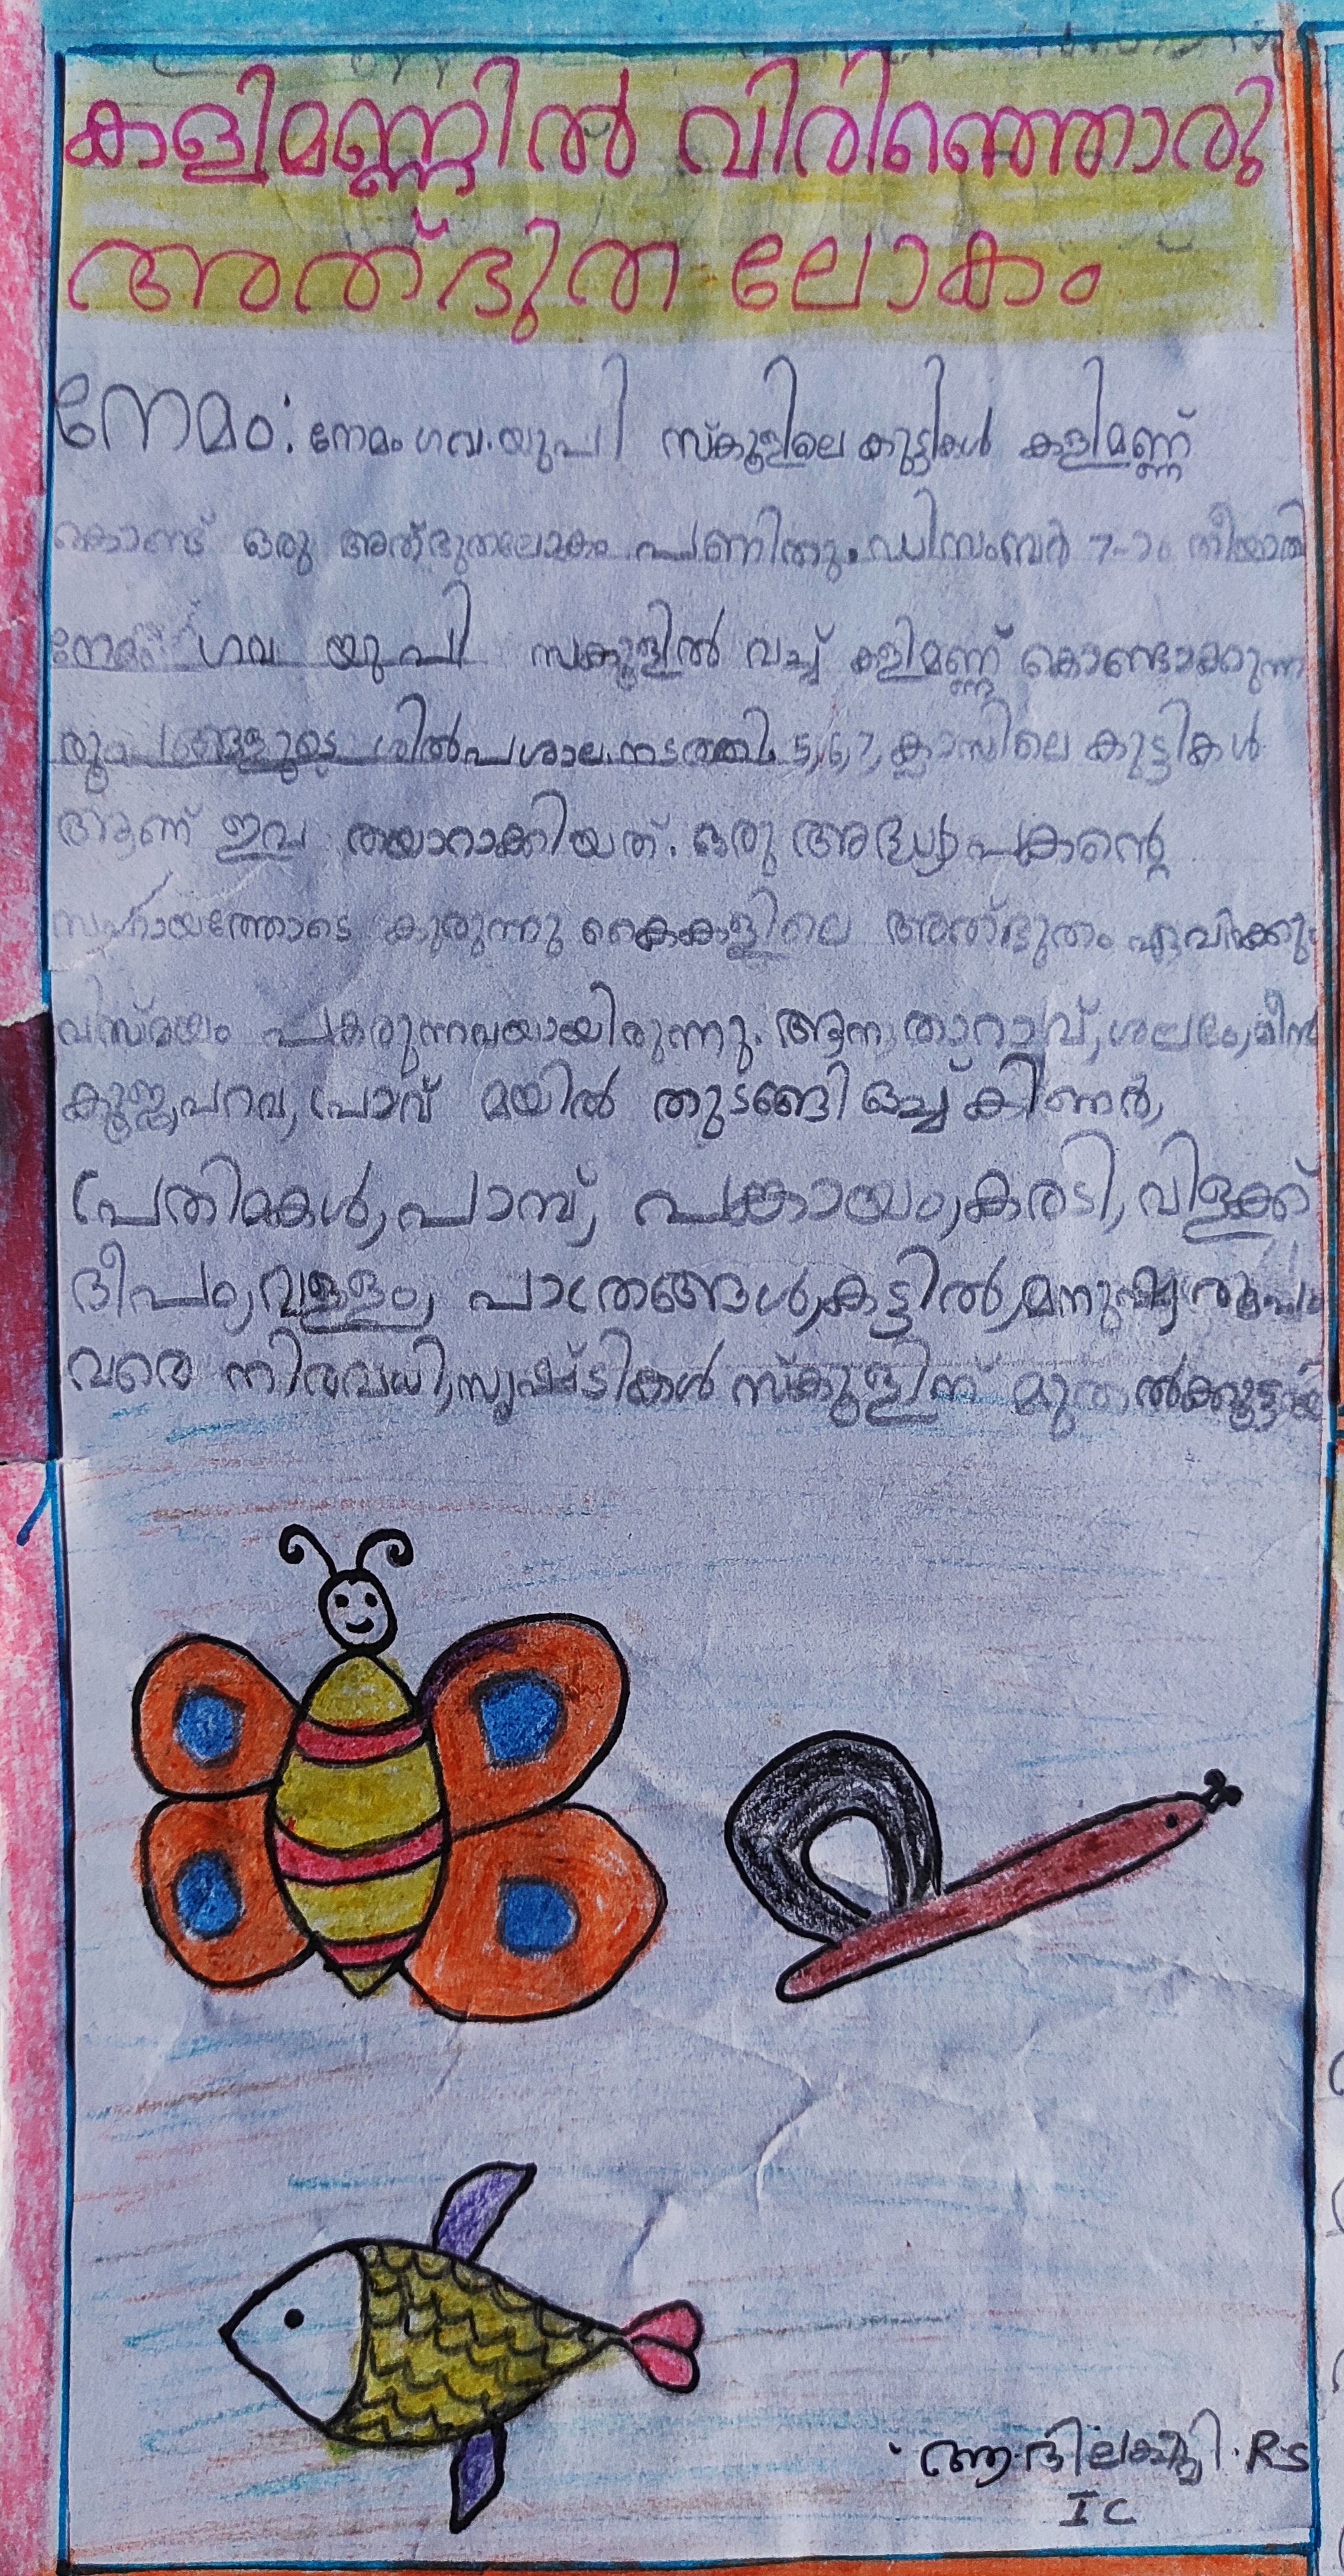 കളിമണ്ണിൽ വിരിഞ്ഞൊരു
അത്ഭുത ലോകം
നേമം: നേമം ഗവ.യുപി സ്കൂളിലെ കുട്ടികൾ കളിമണ്ണ്
കൊണ്ട് ഒരു അത്ഭുതലോകം പണിതു. ഡിസംബർ 7-ാം തീയതി
നേമം ഗവ യു പി സ്കൂളിൽ വച്ച് കളിമണ്ണ് കൊണ്ടാക്കുന്ന
രൂപങ്ങളുടെ ശിൽപശാല നടത്തി. 5,6,7, ക്ലാസിലെ കുട്ടികൾ
ആണ് ഇവ തയാറാക്കിയത്. ഒരു അദ്ധ്യാപകന്റെ
സഹായത്തോടെ കുരുന്നു കൈകളിലെ അത്ഭുതം ഏവർക്കും
വിസ്മയം പകരുന്നവയായിരുന്നു. ആന, താറാവ്, ശലഭം, മീൻ
പറവ, പ്രാവ് മയിൽ തുടങ്ങി ഒച്ച് കിണർ,
പ്രതിമകൾ, പാമ്പ്, പങ്കായം, കരടി, വിളക്ക്
ദീപം, വള്ളം, പാത്രങ്ങൾ, കട്ടിൽ, മനുഷ്യരൂപം
വരെ നിരവധി, സൃഷ്ടികൾ സ്കൂളിന് മുതൽക്കൂട്ടായി
ആദിലക്ഷ്മി. R.S
I C